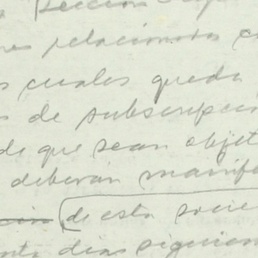 sección
relacionados
cuales queda
de subscripción
de que sean objet
deberán manif
de esta socie
dias siguien